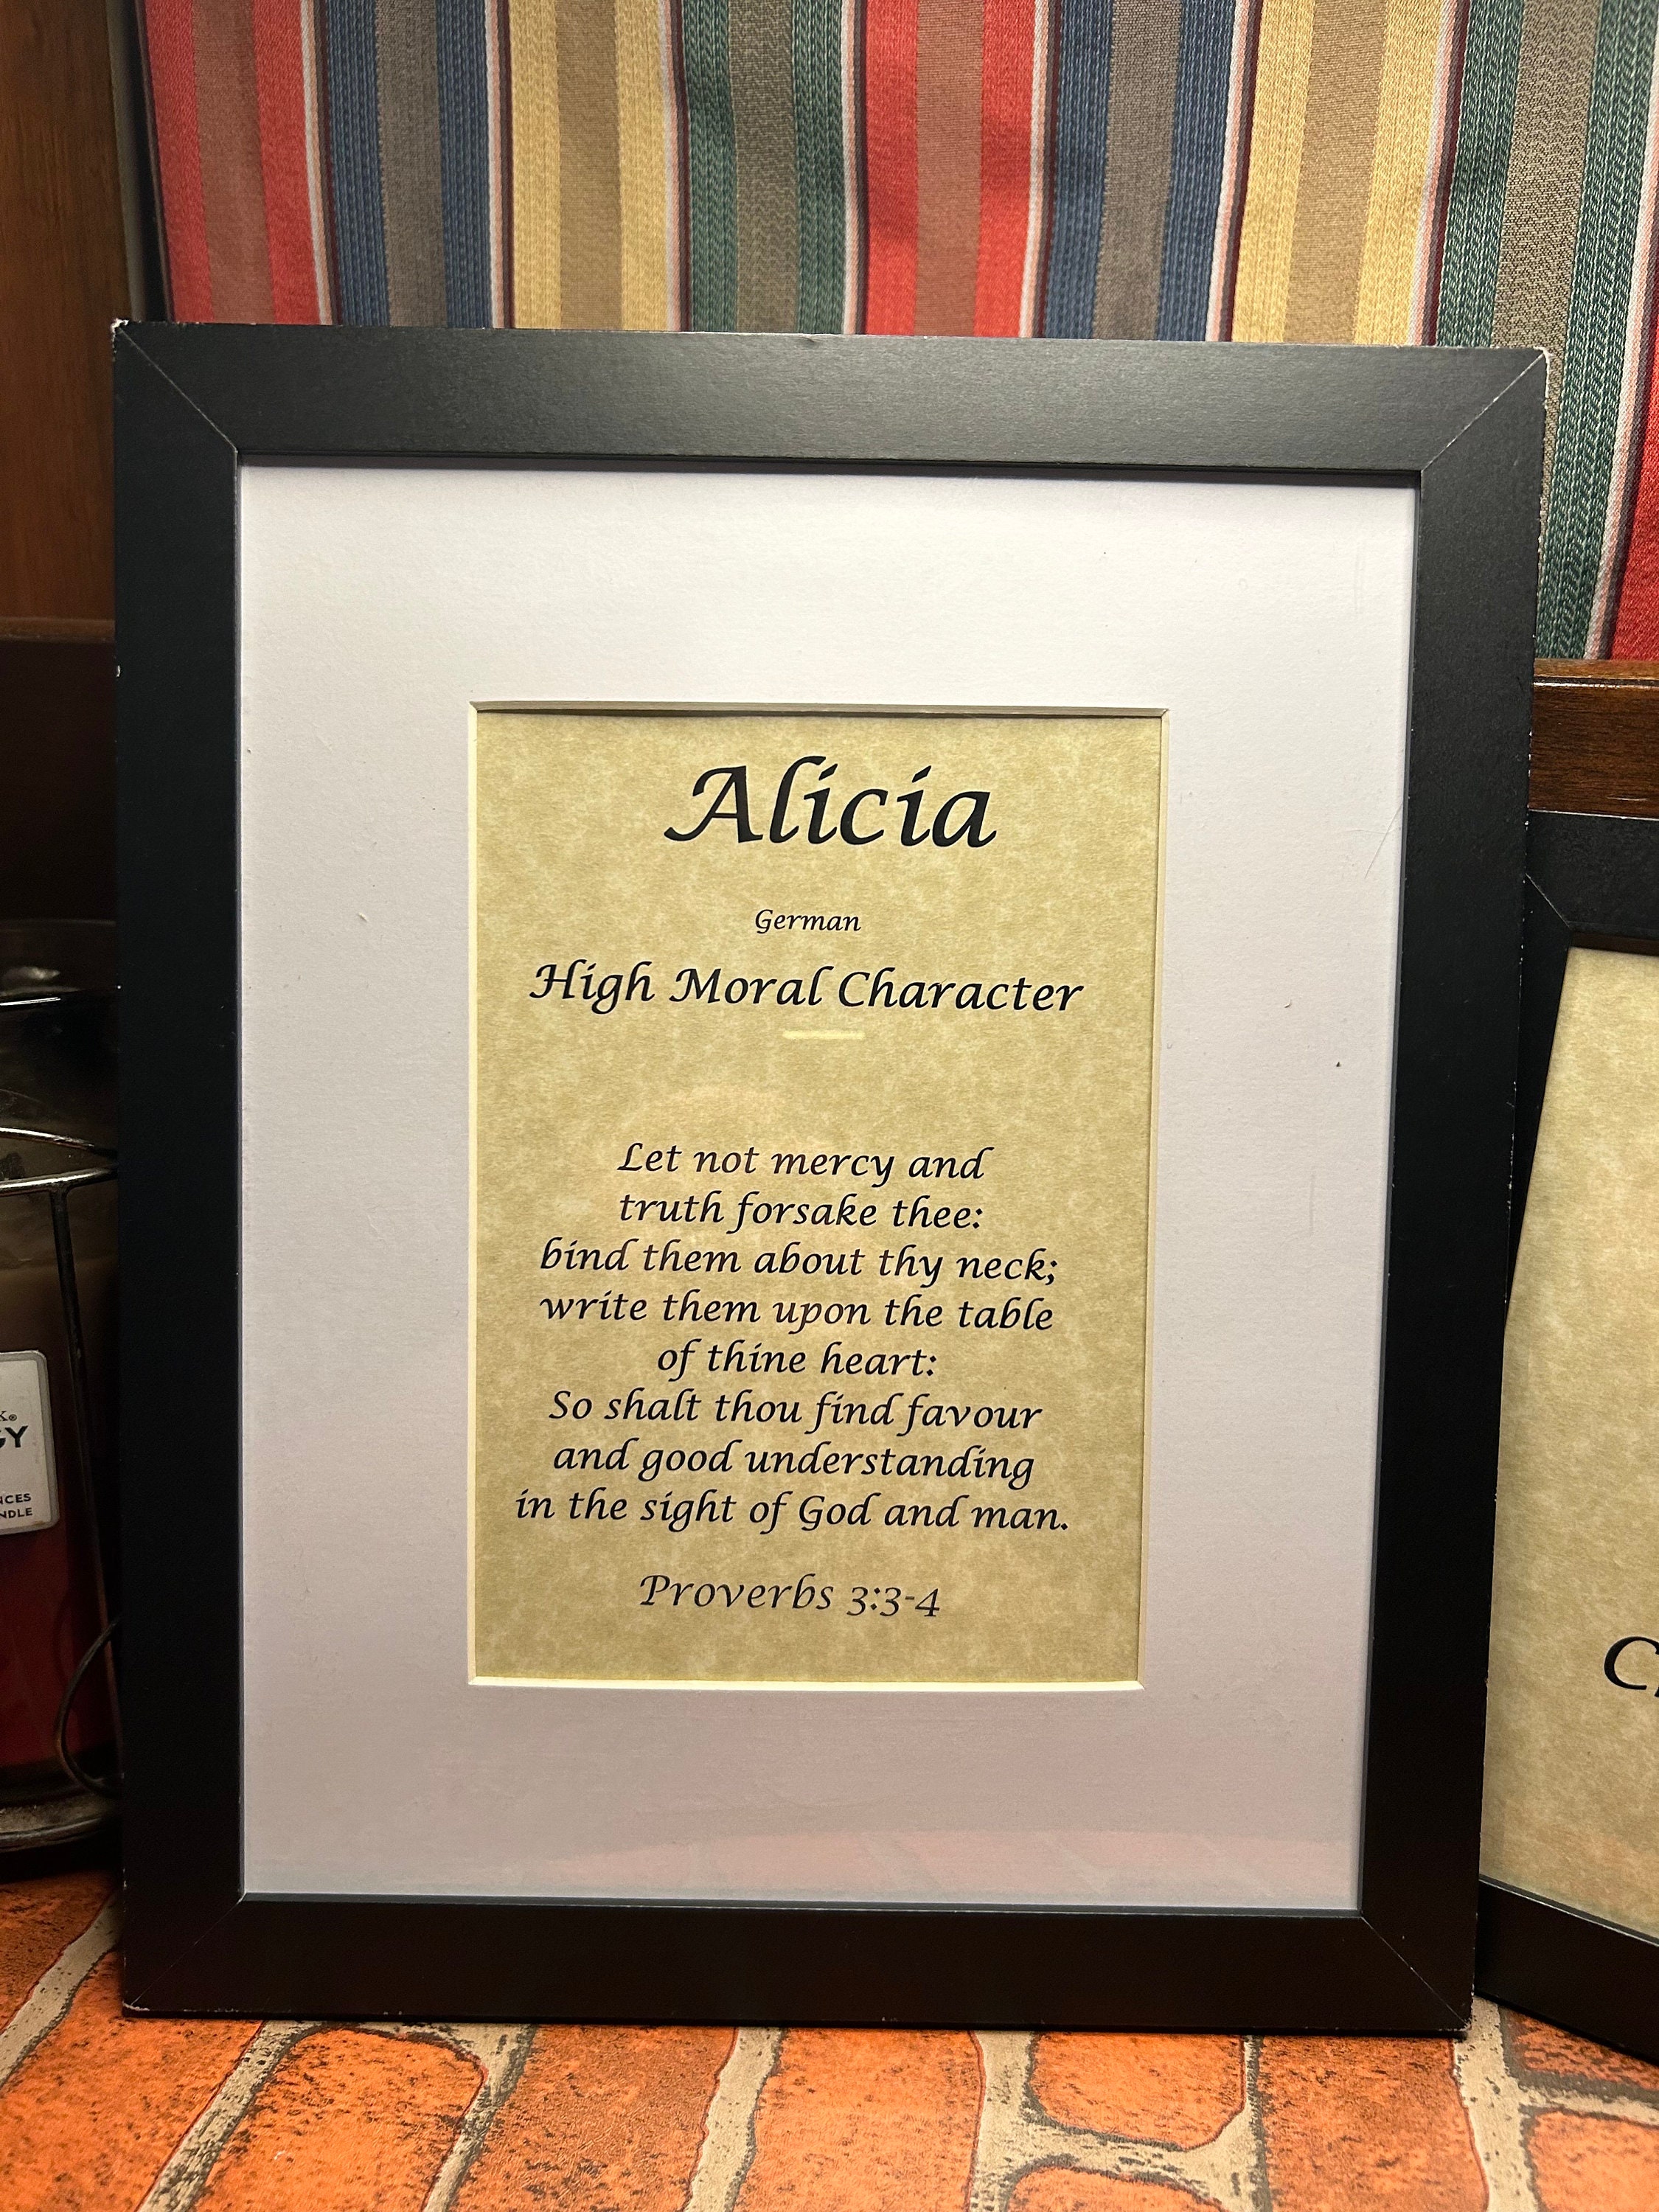 Alicia
German
High Moral Character
Let not mercy and
truth forsake thee:
bind them about thy neck;
write them upon the table
of thine heart:
So shalt thou find favour
and good understanding
in the sight of God and man.
Proverbs 3:3-4